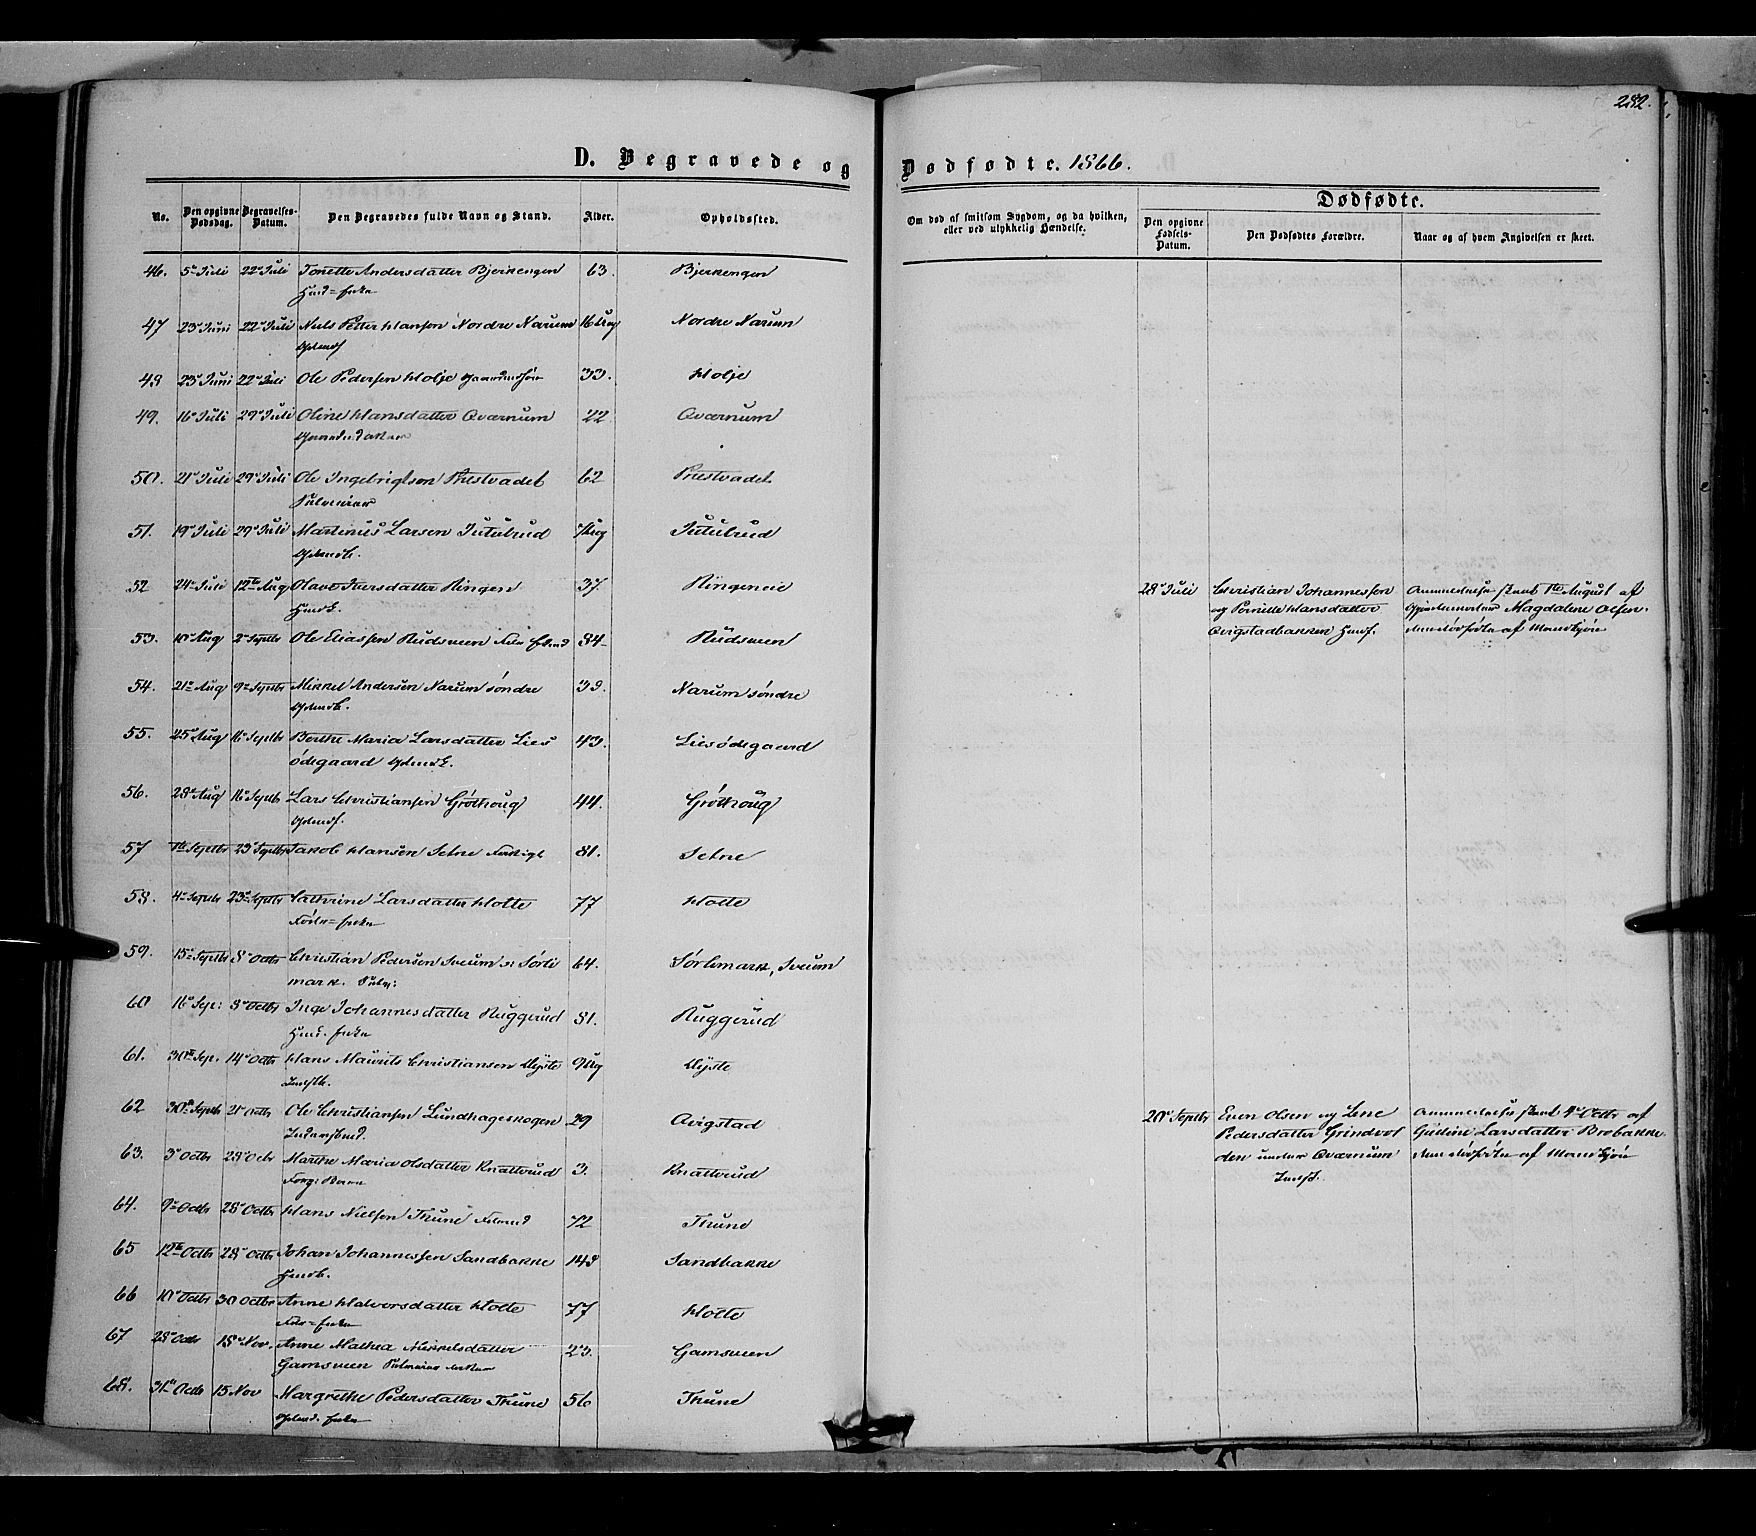 282.
D. Begravede og Dødfødte. 1866.
No. Den opgivne Dødsdag. Begravelses-Datum. Den Begravedes fulde Navn og Stand. Alder. Opholdssted. Om død af smitsom Sygdom, og da hvilken, eller ved ulykkelig Hændelse. Dødfødte. Den opgivne Fødsels-Datum. Den Dødfødtes Forældre. Naar og af hvem Angivelsen er skeet.
46. 5te Juli 22de Juli Tonette Andersdatter Bjerkengen 63. Bjerkengen
47 23de Juni 22de Juli Niels Petter Hansen Nordre Narum 16 Uger Nordre Narum
48 23de Juni 22de Juli Ole Pedersen Holje 33. Holje
49. 16de Juli 29de Juli Oline Hansdatter Qværnum 22 Qværnum
50. 21de Juli 29de Juli Ole Ingebrigtsen Prestvadet 62 Prestvadet
51. 19de Juli 29de Juli Martinus Larsen Jutulrud Jutulrud
52 24de Juli 12te Aug Iversdatter Ringen 37. Ringeneie
28de Juli Christian Johannessen
og Pernille Hansdatter
Qvigstadbakken
Anmeldelse skeet 1ste August af
Magdalene Olsen.
den dødfødte af Mandkjøn
53. 10de Aug 2den Septbr Ole Eliassen Rudsmoen 84 Rudsmoen
54. 21de Aug 9de Septbr Mikkel Andersen Narum søndre 39. Narum søndre
55. 25de Aug 16de Septbr Berthe Maria Larsdatter Lies
ødegaard 43. Liesødegaard
56. 28de Aug 16de Septb Lars Christiansen Grøthoug 44. Grøthoug
57 1ste Septbr 23de Septbr Jakob Hansen Setne 81. Setne
58. 4de Septbr 23de Septbr Cathrine Larsdatter Holte 77 Holte
59. 15de Septbr 8de Octbr Christian Pedersen Sveum Sørli
mark. 64. Sørlimark, Sveum
60 16de Sep: 8de Octbr Inge Johannesdatter Ruggerud 81. Ruggerud
61. 30te Sep. 14de Octbr Hans Maurits Christiansen Dyste 9 Ug Dyste
62 30te Septb 21de Octbr Ole Christiansen Lundhageskogen 29 Qvigstad
20de Septbr Even Olsen og Lene
Pedersdatter Grindvol
den under Qværnum
Anmeldelse skeet 4de Octbr af
Gudine Larsdatter Brobakke.
den dødfødte af Mandkjøn
63. 3de Octbr 28de Octbr Marthe Maria Olsdatter Knattrud 3. Knattrud
64. 9de Octbr 28de Octbr Hans Nielsen Thune 72 Thune
65 12te Octbr 28de Octbr Johan Johannessen Sandbakke Sandbakke
66 10de Octbr 30 Octbr Anne Halvorsdatter Holte 77 Holte
67 28de Octbr 18de Nov. Anne Mathea Mikkelsdatter
Gamsmoen 23. Gamsmoen
68. 31te Octb 15 Nov Margrethe Pedersdatter Thune 56 Thune